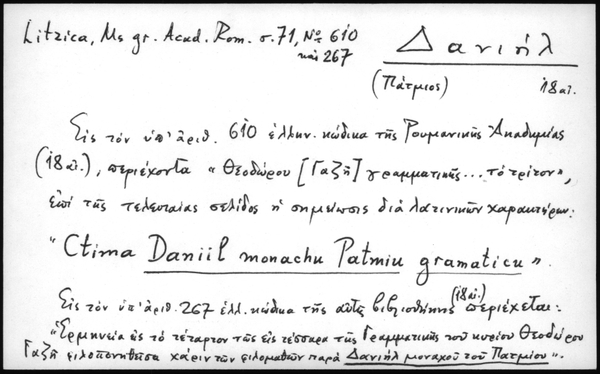 Litzica, Ms gr. Acad. Rom. σ. 71, Νο 610
και 267
Δανιήλ
(Πάτμιος) 18 αἰ.
Εἰς τὸν ὑπ' ἀριθ. 610 ἑλλην. κώδικα τῆς Ρουμανικῆς Ἀκαδημίας
(18 αἰ.), περιέχοντα « Θεοδώρου [Γαζῆ] γραμματικῆς... τὸ τρίτον»,
ἐπὶ τῆς τελευταίας σελίδος ἡ σημείωσις διὰ λατινικῶν χαρακτήρων:
"Ctima Daniil monachu Patmiu gramaticu".
Εἰς τὸν ὑπ' ἀριθ. 267 ἑλλ. κώδικα τῆς αὐτῆς βιβλιοθήκης (18 αἰ.) περιέχεται:
"Ἑρμηνεία εἰς τὸ τέταρτον τῆς εἰς τέσσαρα τῆς Γραμματικῆς τοῦ κυρίου Θεοδώρου
Γαζῆ φιλοπονηθεῖσα χάριν τῶν φιλομαθῶν παρὰ Δανιὴλ μοναχοῦ τοῦ Πατμίου".